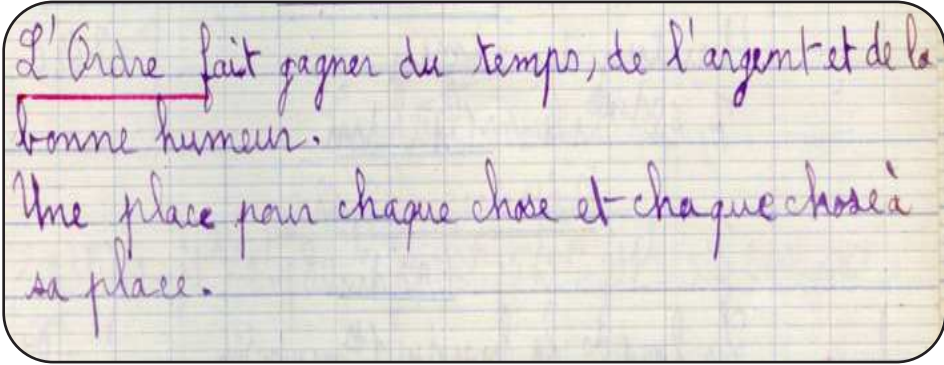 L'Ordre fait gagner du temps, de l'argent et de la
bonne humeur.
Une place pour chaque chose et chaque chose à
sa place.